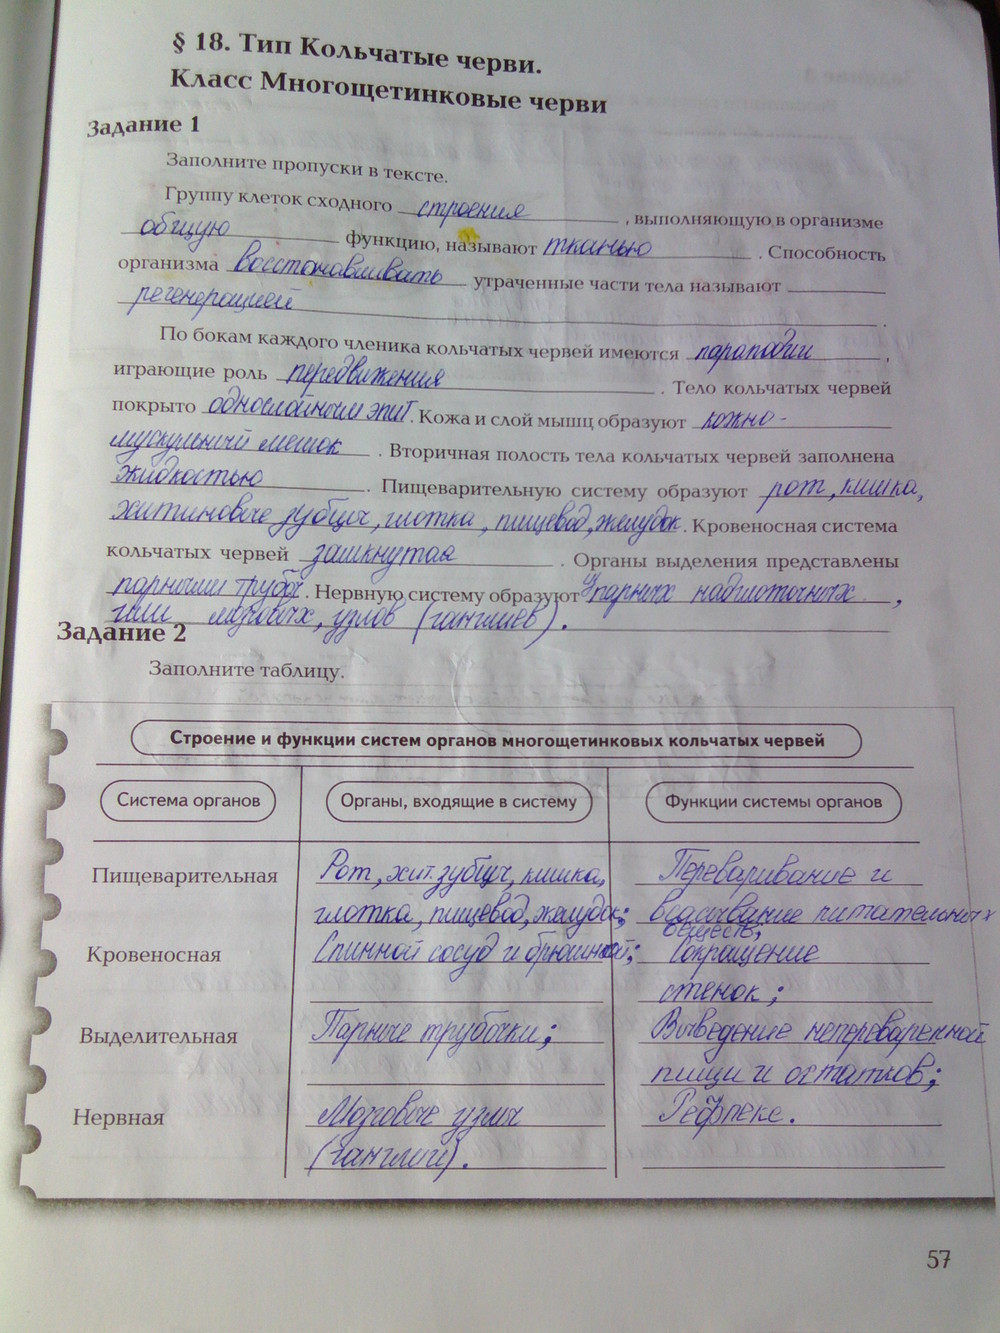 § 18. Тип Кольчатые черви.
Класс Многощетинковые черви
Задание 1
Заполните пропуски в тексте.
Группу клеток сходного строения , выполняющую в организме
общую функцию, называют тканью . Способность
организма восстанавливать утраченные части тела называют
регенерацией .
По бокам каждого членика кольчатых червей имеются параподии ,
играющие роль передвижения . Тело кольчатых червей
покрыто однослойным эпит. Кожа и слой мышц образуют кожно-
мускульный мешок . Вторичная полость тела кольчатых червей заполнена
жидкостью . Пищеварительную систему образуют рот, кишка,
хитиновые зубцы, глотка, пищевод, желудок. Кровеносная система
кольчатых червей замкнутая . Органы выделения представлены
парными трубоч. Нервную систему образуют из парных надглоточных ,
ганг мозговых, узлов (ганглиев).
Задание 2
Заполните таблицу.
Строение и функции систем органов многощетинковых кольчатых червей
Система органов Органы, входящие в систему Функции системы органов
Пищеварительная Рот, хит. зубцы, кишка, Переваривание и
глотка, пищевод, желудок; всасывание питательных
веществ;
Кровеносная Спинной сосуд и брюшной; Сокращение
стенок;
Выделительная Парные трубочки; Выведение непереваренной
пищи и остатков;
Нервная Мозговые узлы Рефлекс.
(ганглий).
57